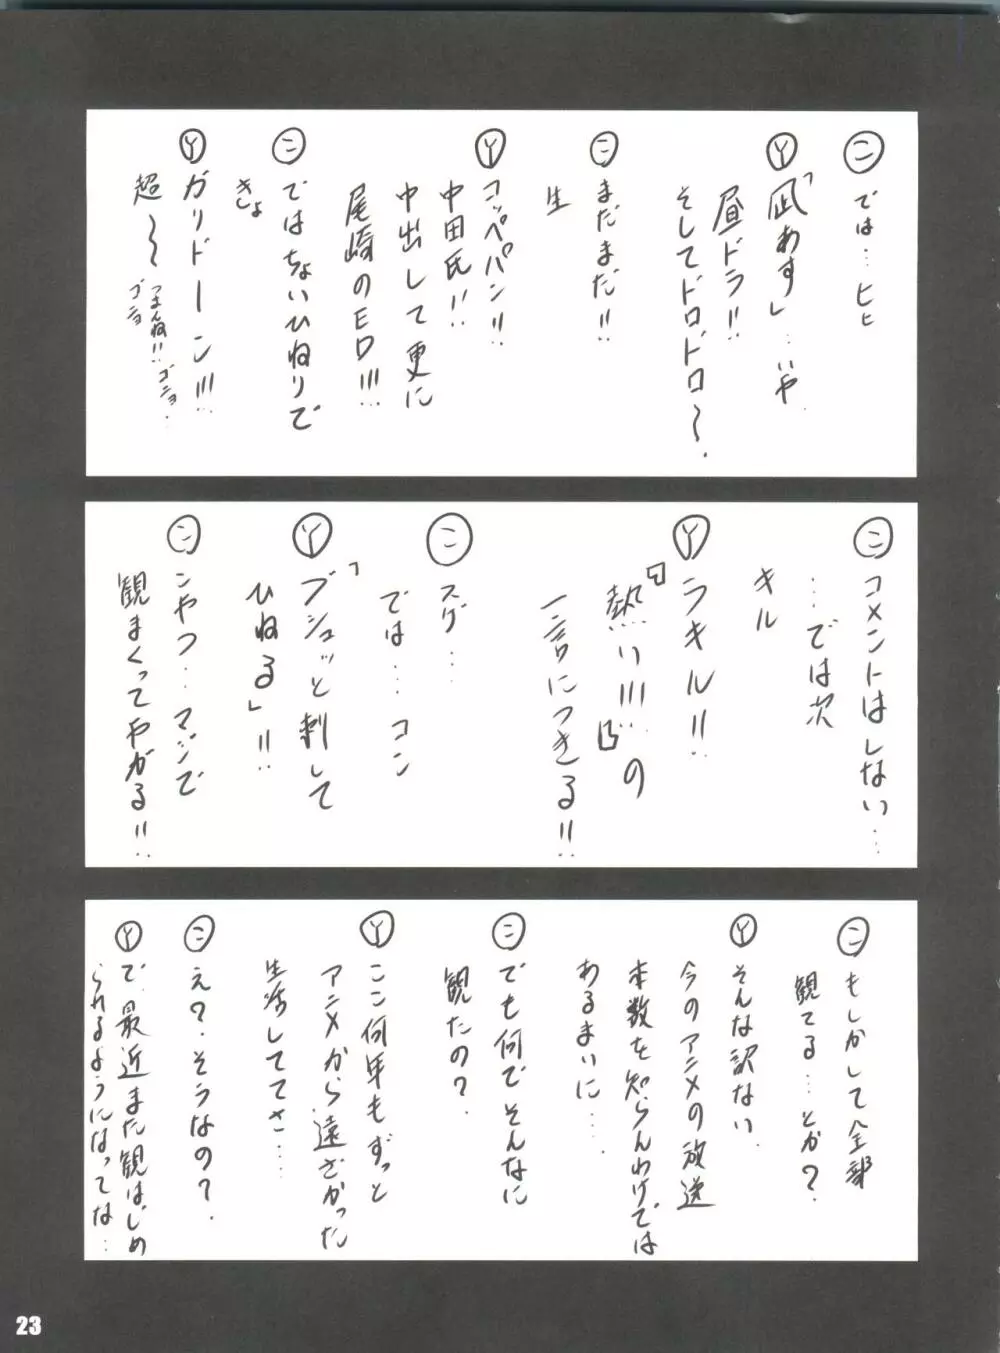 こ では…ヒヒ
Y 「凪あす」…いや
昼ドラ!!
そしてドロドロ〜.
こ まだまだ!!
生
Y コッペパン!!
中田氏!!
中出して更に
尾崎のED!!!
こ ではちょいひねりで
きしょ
Y ガリドーン!!!
超〜〜つまんね!!ゴニョゴニョ…
こ コメントはしない…
…では次
キル
Y ラキル!!
『熱い!!!』の
一言につきる!!
こ スゲ…
では…コン
Y 「ブシュッと刺して
ひねる」!!
こ こやつ…マジで
観まくってやがる!!
こ もしかして全部
観てる…とか?
Y そんな訳ない.
今のアニメの放送
本数を知らんわけでは
あるまいに…
こ でも何でそんなに
観たの?
Y ここ何年もずっと
アニメから遠ざかった
生活しててさ…
こ え?そうなの?
Y で 最近また観はじめ
られるようになってな…
23